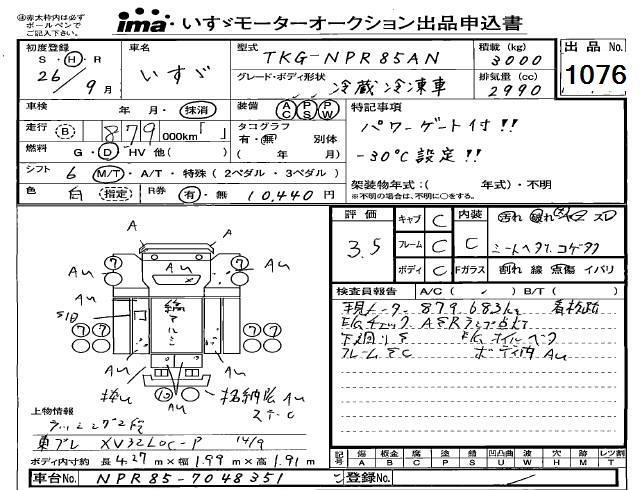 ④赤太枠内は必ず
ボールペンで
ご記入下さい。
ima いすゞモーターオークション出品申込書
初度登録 車名 型式 TKG-NPR85AN 積載 (kg) 3000 出品 No.
S・H・R 26/9月 いすゞ グレード・ボディ形状 冷蔵冷凍車 排気量 (cc) 2990 1076
車検 年 月・抹消 装備 AC PS PW 特記事項
走行 B 879 000km「 」 タコグラフ 有・無 別体 パワーゲート付!!
燃料 G・D HV 他( ) ( 年 月) -30℃設定!!
シフト 6 M/T・A/T・特殊(2ペダル・3ペダル)
色 白 指定 R券 有・無 10,440円 架装物年式:( 年式)・不明
※不明の場合は、不明に○をする。
評価 3.5 キャブ C 内装 C 汚れ 破れ スレ
フレーム C シートヘタリ、コゲ
ボディ C Fガラス 割れ 線 点傷 イバリ
検査員報告 A/C( ✓ ) B/T( )
現メーター 879,683km
E/Gチェック
下廻りサ E/Gオイル
フレームサC ボディ内AU
A A
⑦ AU ⑦
AU AU
AU AU
格納 AU
AU C
上物情報
ラッシング2段
東プレ XV32LOC-P 14/9
ボディ内寸約 長4.27m×幅1.99m×高1.91m
記号 傷 A 板金 B 腐 C 塗 P 錆 S 凹凸曲 U 波 W 穴 H 跡 M レツ割 T
車台No. NPR85-7048351 登録No.